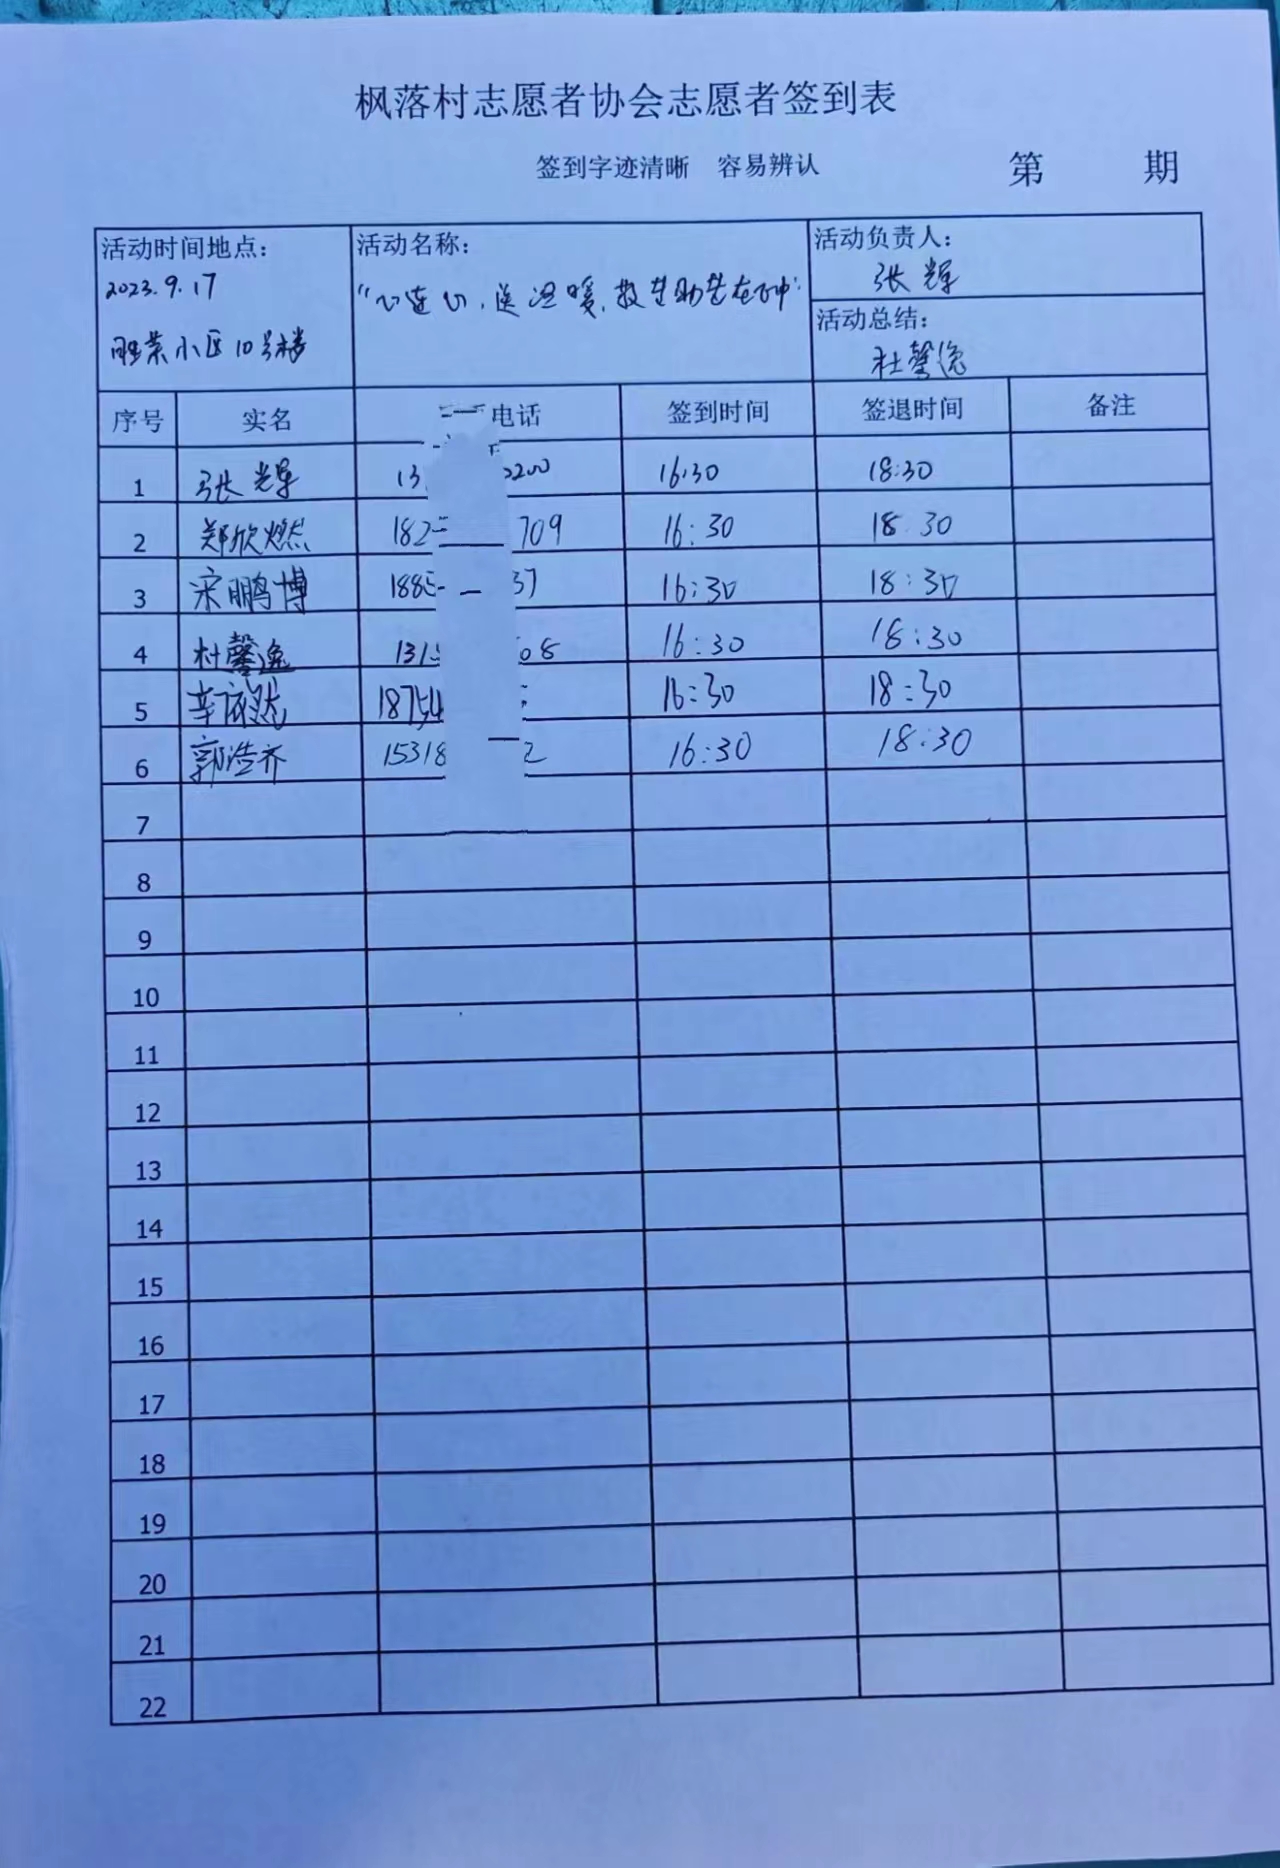 枫落村志愿者协会志愿者签到表
签到字迹清晰 容易辨认
第 期
活动时间地点：
2023.9.17
小区10号楼
活动名称：
"心连心，送温暖，救生助苦在
活动负责人：
张辉
活动总结：
杜馨逸
序号 实名 电话 签到时间 签退时间 备注
1 张辉 13 0200 16:30 18:30
2 郑欣燃 182 709 16:30 18:30
3 宋鹏博 188 37 16:30 18:30
4 杜馨逸 131 08 16:30 18:30
5 辛 18754 16:30 18:30
6 郭浩齐 15318 2 16:30 18:30
7
8
9
10
11
12
13
14
15
16
17
18
19
20
21
22